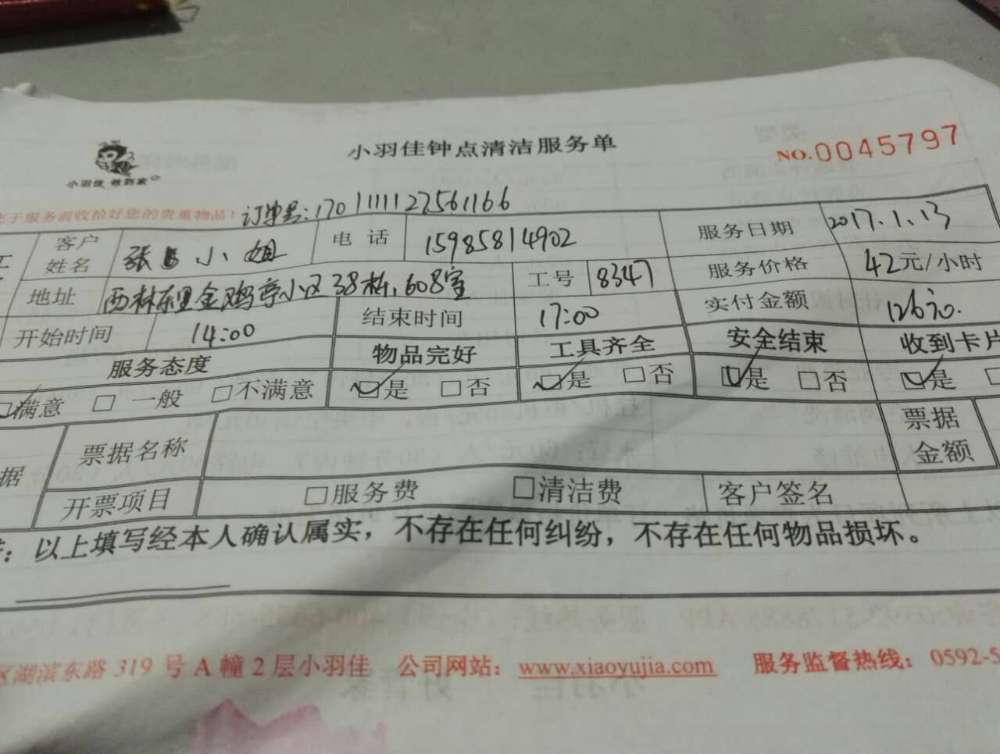 小羽佳钟点清洁服务单
NO.0045797
小羽佳 做到家
于服务前收拾好您的贵重物品! 订单号:1701111127561166
客户姓名 张 小姐 电话 15985814902 服务日期 2017.1.13
地址 西林东里金鸡亭小区38栋,608室 工号 8347 服务价格 42元/小时
开始时间 14:00 结束时间 17:00 实付金额 126元.
服务态度 物品完好 工具齐全 安全结束 收到卡片
☑满意 □ 一般 □不满意 ☑是 □否 ☑是 □否 ☑是 □否 ☑是 □
据 票据名称 票据金额
开票项目 □服务费 □清洁费 客户签名
:以上填写经本人确认属实,不存在任何纠纷,不存在任何物品损坏。
区湖滨东路 319 号 A 幢 2 层小羽佳 公司网站:www.xiaoyujia.com 服务监督热线:0592-5